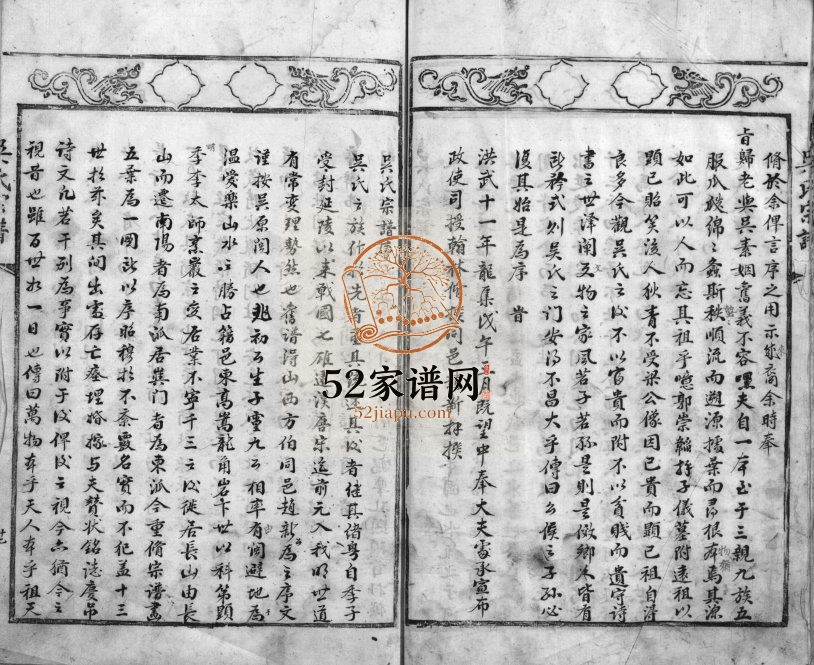 脩於余俾言序之用示來裔余時奉
旨歸老與吳素姻舊義不容嘿夫自一本至于三親九族五
服瓜瓞綿綿螽斯秩秩順流而遡源據葉而尋根本焉其源
如此可以人而忘其祖乎噫郭崇韜拜子儀墓附遠祖以
顯已貽笑後人狄青不受梁公像因已貴而顯已祖自得
良多今觀吳氏之後不以富貴而附不以貧賤而遺守詩
書之世澤闡文物之家風若子若孫是則是傚鄉人皆有
矜式則吳氏之門安得不昌大乎傳曰公侯之子孫必
復其始是為序 旹
洪武十一年龍集戊午二月既望中奉大夫
宣布
政使司 同邑
吳氏宗譜
吳氏之族 先者 其 後者 其借粵自季子
受封延陵以來戰國之 唐宋迄前元入我明世道
有常變理勢然也舊譜得山西方伯同邑趙新為之序文
謹按吳原閩人也 初公生子靈九公相率有閩避地為
溫愛樂山水之勝占籍邑東高嵩龍角岩下世以科第顯
季李太師業嚴之 居業不寧千三之後徙居長山由長
山而遷南陽者為南派居巽門者為東派今重脩宗譜畫
五葉為一圖 以序昭穆 不紊覈名實而不犯蓋十三
世於茲矣其間出處存亡瘞埋婚嫁與夫贊狀銘誌慶弔
詩文凡若干別為事實以附于後俾後之視今亦猶今之
視昔也雖百世如一日也傳曰萬物本乎天人本乎祖天
吳氏宗譜
吳氏宗譜
52家谱网
52jiapu.com